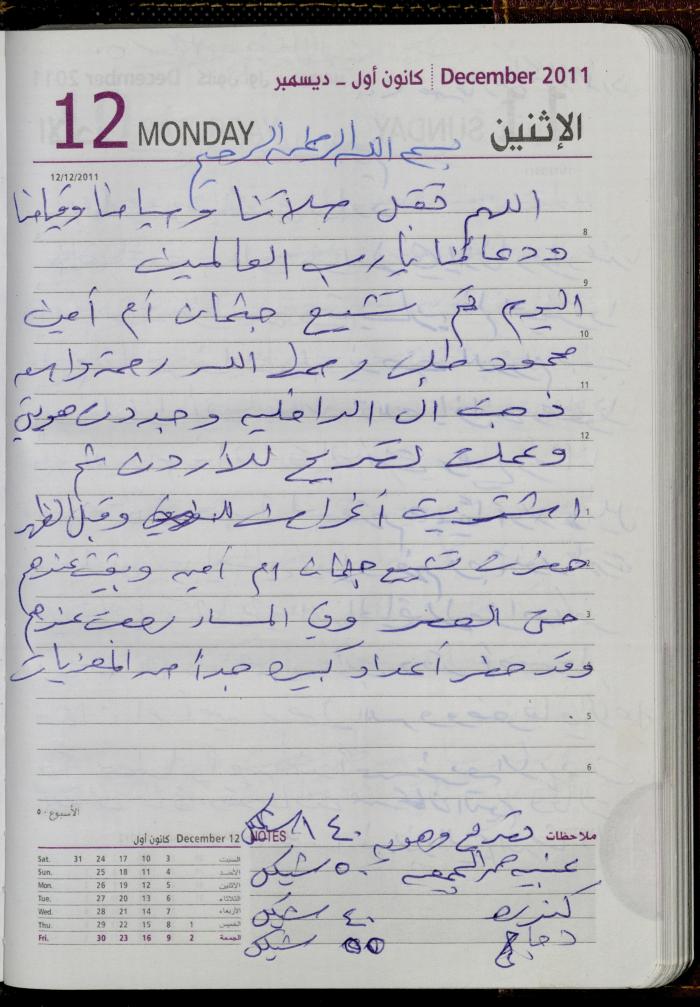 كانون أول ـ ديسمبر December 2011
12 MONDAY الإثنين
بسم الله الرحمن الرحيم
12/12/2011
اللهم تقبل صلاتنا وصيامنا وقيامنا
8
ودعائنا يارب العالمين
9
اليوم تم تشيع جثمان أم أمين
10
محمود طه رحمها الله رحمة واسعه
11
ذهبت الى الداخليه وجددت هوية
12
وعملت تصريح للأردن ثم
اشتريت أغراض للبيت وقبل الظهر
1
حضرت تشيع جثمان ام أمين وبقيت عندهم
2
حتى العصر وفي المساء رجعت عندهم
3
وقد حضر أعداد كبيره جداً من المعزيات
5
6
الأسبوع ٥٠
كانون أول December 12
NOTES ملاحظات
تصريح وهويه ١٤٠ شيكل
٥٠ شيكل
كندره ٤٠ شيكل
دجاج ٥٥ شيكل
Sat. 31 24 17 10 3 السبت
Sun. 25 18 11 4 الأحد
Mon. 26 19 12 5 الاثنين
Tue. 27 20 13 6 الثلاثاء
Wed. 28 21 14 7 الأربعاء
Thu. 29 22 15 8 1 الخميس
Fri. 30 23 16 9 2 الجمعة